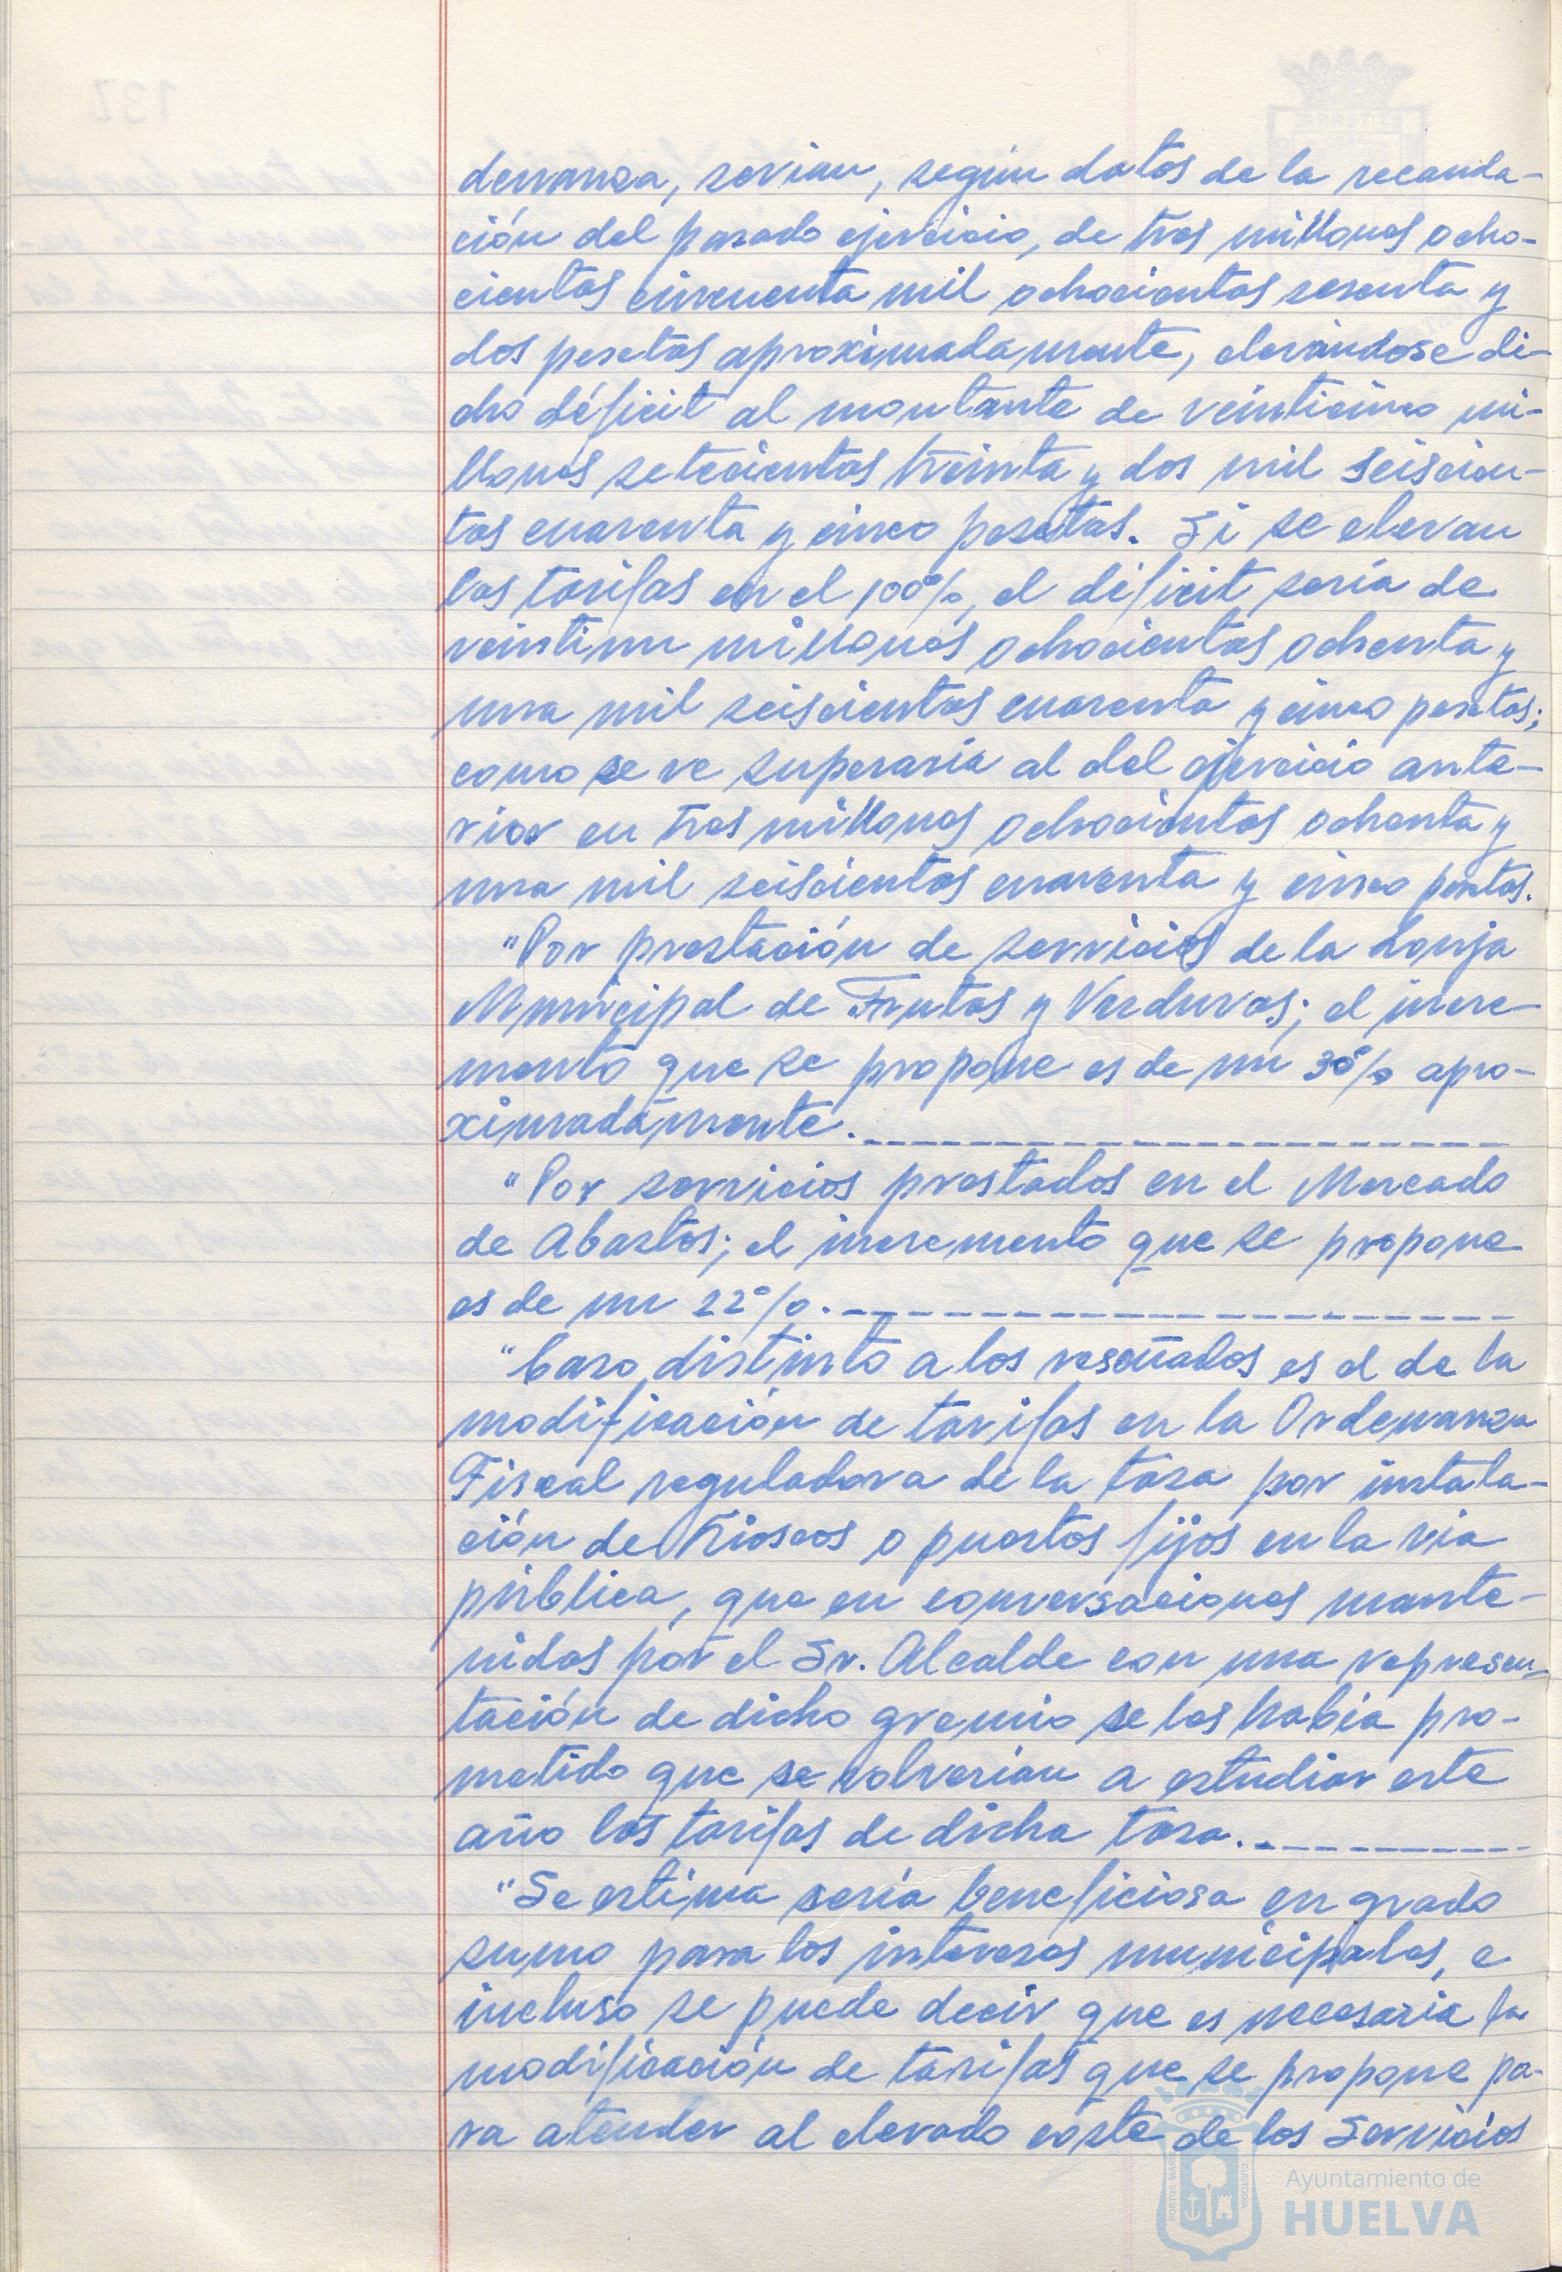 denanza, serian, según datos de la recauda-
ción del pasado ejercicio, de tres millones ocho-
cientas cincuenta mil ochocientas sesenta y
dos pesetas aproximadamente, elevándose di-
cho déficit al montante de veinticinco mi-
llones setecientas treinta y dos mil seiscien-
tas cuarenta y cinco pesetas. Si se elevan
las tarifas en el 100%, el déficit sería de
veintiun millones ochocientas ochenta y
una mil seiscientas cuarenta y cinco pesetas;
como se ve superaria al del ejercicio ante-
rior en tres millones ochocientas ochenta y
una mil seiscientas cuarenta y cinco pesetas.
"Por prestación de servicios de la Lonja
Municipal de Frutas y Verduras; el incre-
mento que se propone es de un 30% apro-
ximadamente.
"Por servicios prestados en el Mercado
de Abastos; el incremento que se propone
es de un 22%.
"Caso distinto a los reseñados es el de la
modificación de tarifas en la Ordenanza
Fiscal reguladora de la tasa por instala-
ción de Kioscos o puestos fijos en la via
pública, que en conversaciones mante-
nidas por el Sr. Alcalde con una represen-
tación de dicho gremio se les habia pro-
metido que se volverian a estudiar este
año las tarifas de dicha tasa.
"Se estima sería beneficiosa en grado
sumo para los intereses municipales, e
incluso se puede decir que es necesaria la
modificación de tarifas que se propone pa-
ra atender al elevado coste de los Servicios
Ayuntamiento de
HUELVA
PORTUS MARIS
CUSTODIA